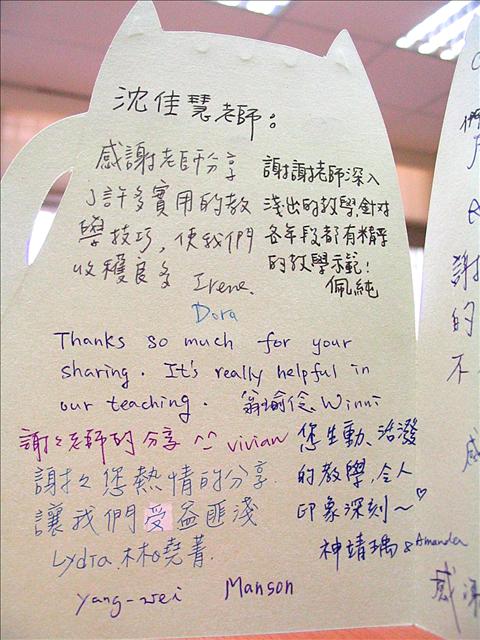 沈佳慧老師：
感謝老師分享
了許多實用的教
學技巧，使我們
收穫良多 Irene.
謝謝老師深入
淺出的教學，針對
各年段都有精彩
的教學示範！
佩純
Dora
Thanks so much for your
sharing. It's really helpful in
our teaching. Winni
謝謝老師的分享 ^^ vivian
您生動、活潑
的教學，令人
印象深刻～♡
& Amanda
謝謝您熱情的分享.
讓我們受益匪淺
Lydia. 林曉菁.
yang-wei Manson
們
謝
的
不
感
感謝